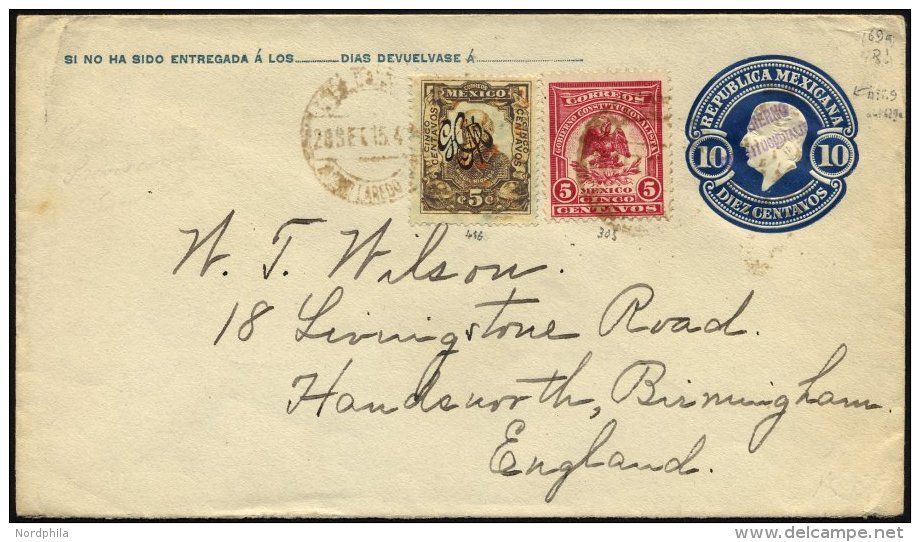 SI NO HA SIDO ENTREGADA Á LOS DIAS DEVUELVASE Á
REPUBLICA MEXICANA
10 10
DIEZ CENTAVOS
28 SET 15. 4
LAREDO
MEXICO
CENTAVOS CENTAVOS
5¢
CORREOS
GOBIERNO CONSTITUCIONALISTA
5 MEXICO 5
CINCO
CENTAVOS
416
305
W. T. Wilson.
18 Livingstone Road.
Handsworth, Birmingham.
England.
Nordphila
www.delcampe.net